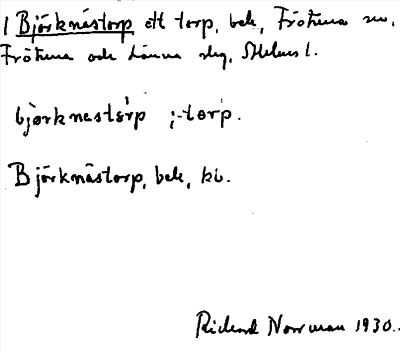 1 Björknästorp ett torp, bek, Frötuna sn,
Frötuna och Länna slg, Sthlms l.
bjørknestɵrp ;-tɵrp.
Björknästorp, bek, kb.
Richard Norrman 1930.